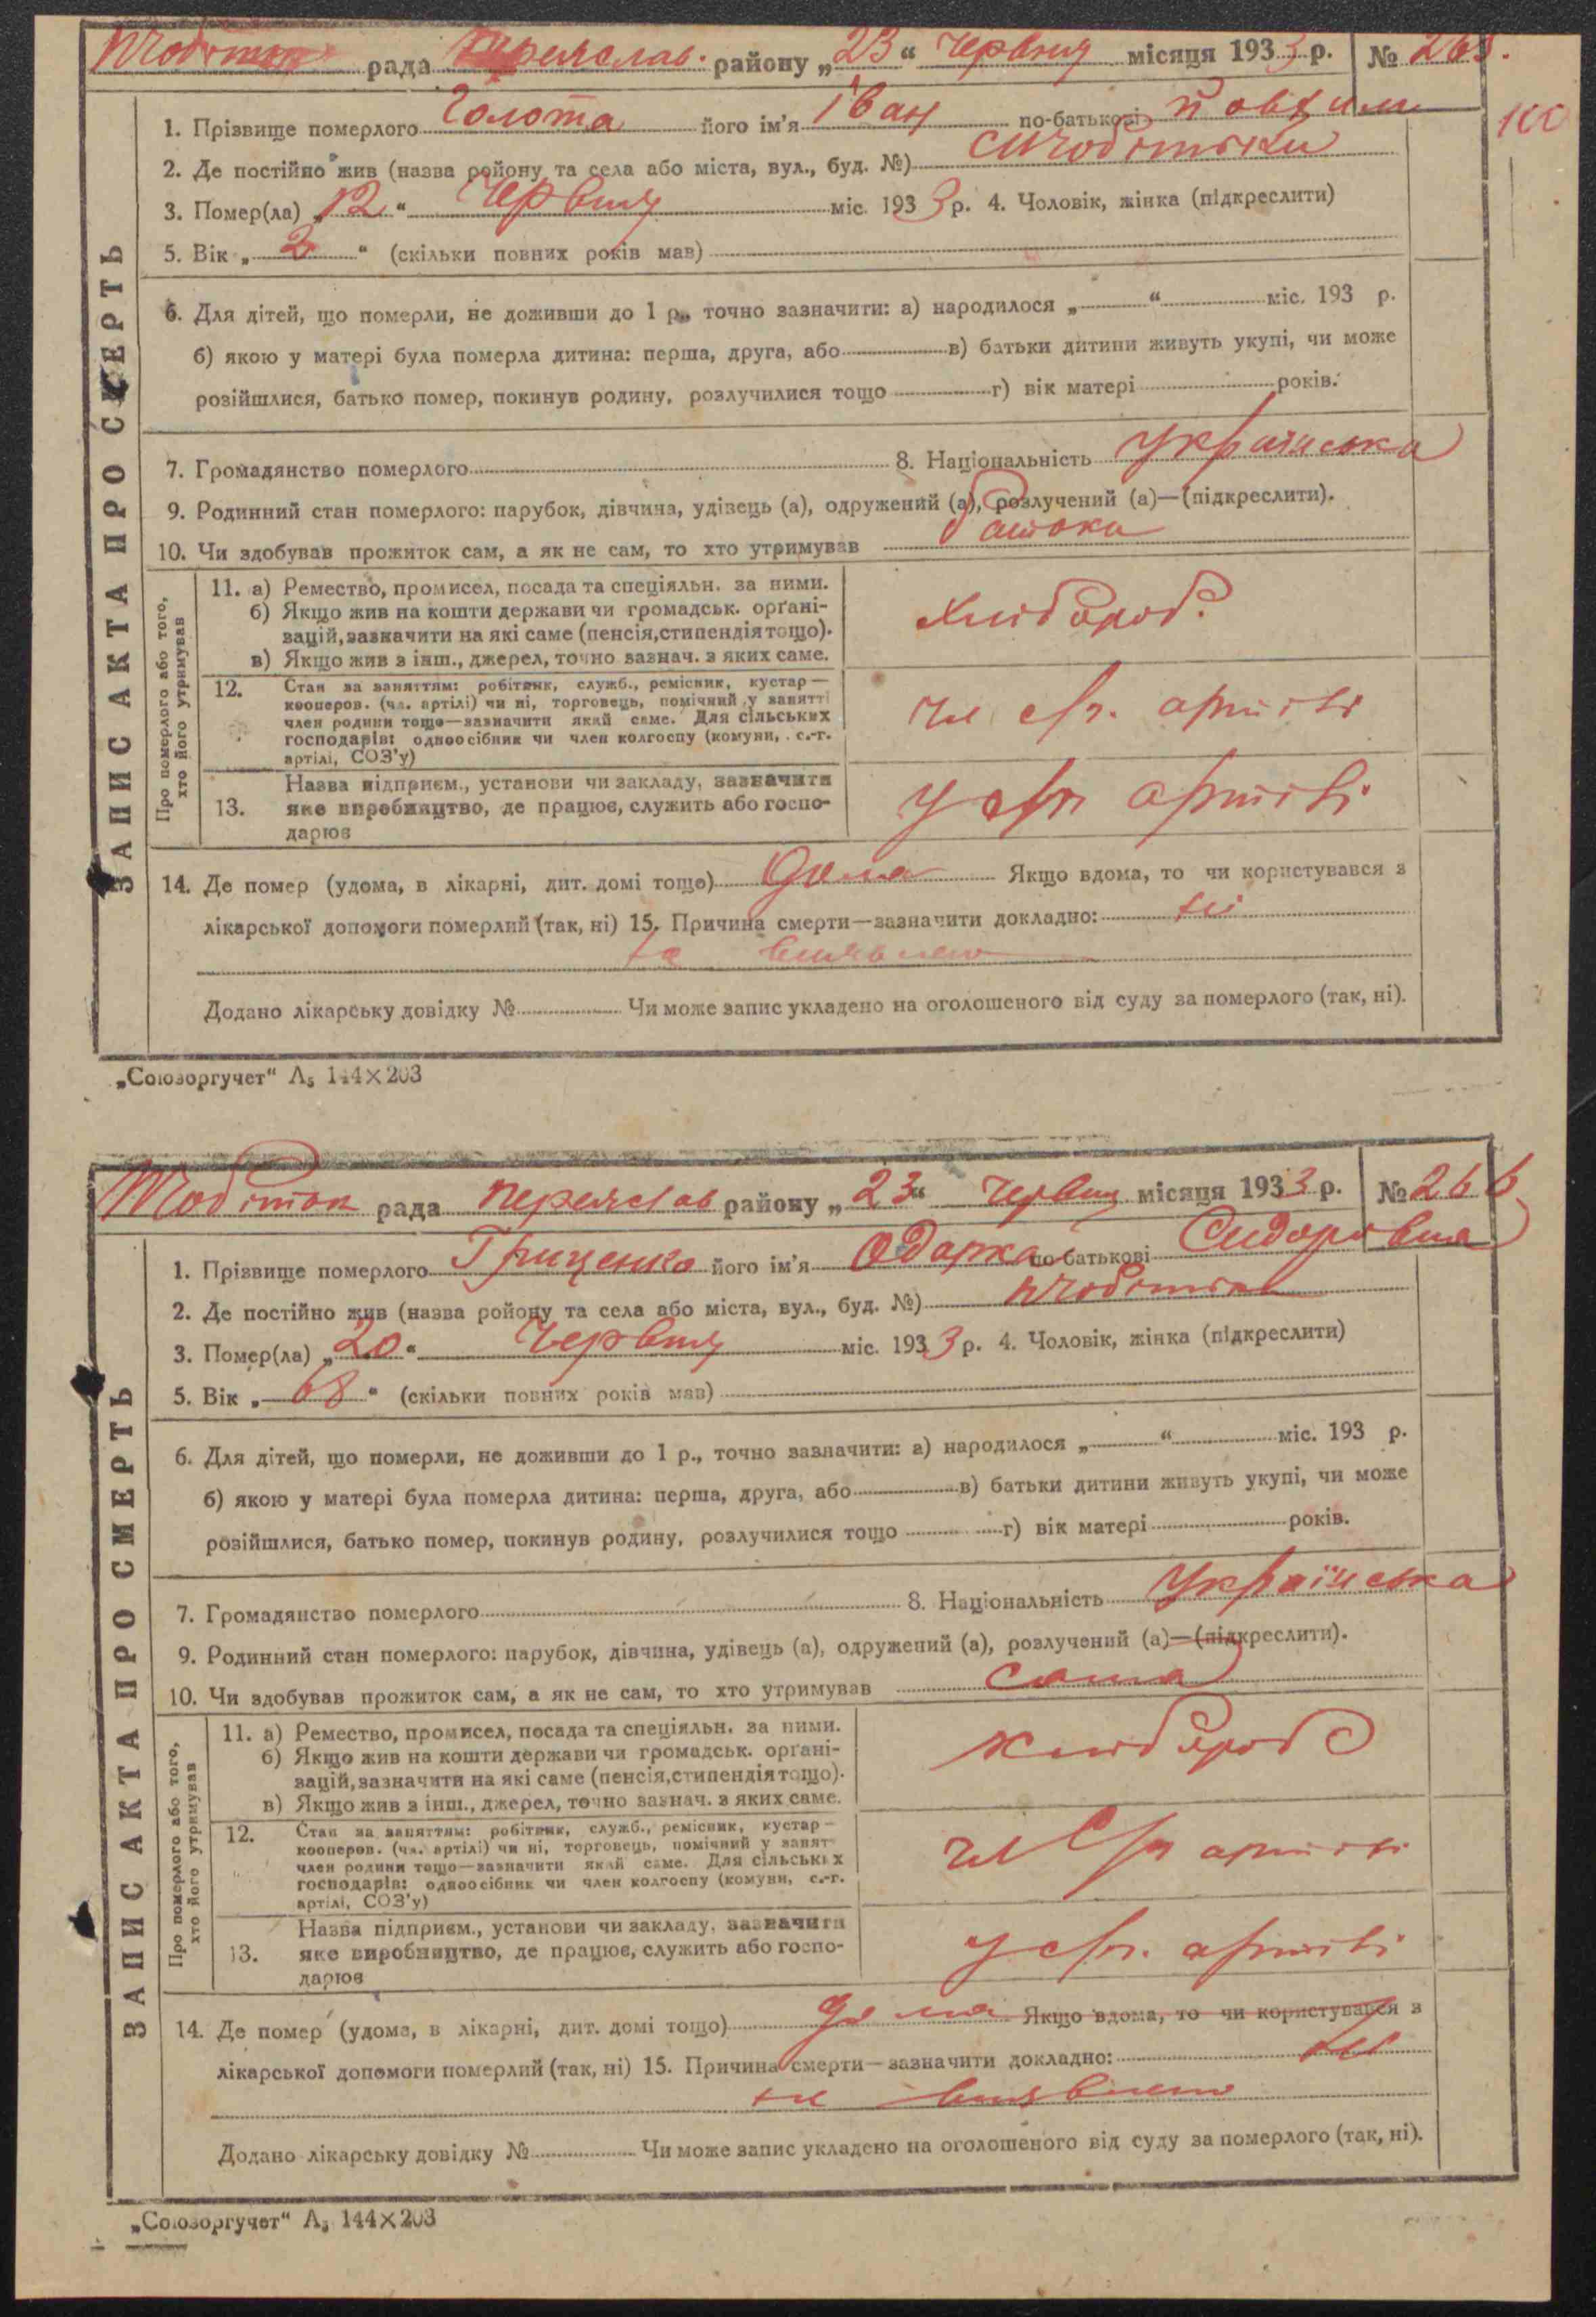 рада Переяслав. району „23“ червня місяця 1933 р. № 265.
100
ЗАПИС АКТА ПРО СМЕРТЬ
1. Прізвище померлого Голота його ім'я Іван по-батькові
2. Де постійно жив (назва ройону та села або міста, вул., буд. №)
3. Помер(ла) „12“ червня міс. 1933 р. 4. Чоловік, жінка (підкреслити)
5. Вік „2“ (скільки повних років мав)
6. Для дітей, що померли, не доживши до 1 р., точно зазначити: а) народилося „ “ міс. 193 р.
б) якою у матері була померла дитина: перша, друга, або в) батьки дитини живуть укупі, чи може
розійшлися, батько помер, покинув родину, розлучилися тощо г) вік матері років.
7. Громадянство померлого 8. Національність українська
9. Родинний стан померлого: парубок, дівчина, удівець (а), одружений (а), розлучений (а)—(підкреслити).
10. Чи здобував прожиток сам, а як не сам, то хто утримував батоки
Про померлого або того, хто його утримував
11. а) Ремество, промисел, посада та спеціяльн. за ними.
б) Якщо жив на кошти держави чи громадськ. орґані-
зацій, зазначити на які саме (пенсія, стипендія тощо).
в) Якщо жив з інш., джерел, точно зазнач. з яких саме.
хлібороб.
12. Стан за заняттям: робітник, служб., ремісник, кустар—
кооперов. (чл. артілі) чи ні, торговець, помічний у занятті
член родини тощо—зазначити який саме. Для сільських
господарів: одноосібник чи член колгоспу (комуни, с.-г.
артілі, СОЗ'у)
чл с/г. артілі
13. Назва підприєм., установи чи закладу, зазначити
яке виробництво, де працює, служить або госпо-
дарює
у с/г артілі
14. Де помер (удома, в лікарні, дит. домі тощо) дома Якщо вдома, то чи користувався з
лікарської допомоги померлий (так, ні) 15. Причина смерти—зазначити докладно: ні
не виявлено
Додано лікарську довідку № Чи може запис укладено на оголошеного від суду за померлого (так, ні).
„Союзоргучет“ А₅ 144×203
рада Переяслав району „23“ червня місяця 1933 р. № 266
ЗАПИС АКТА ПРО СМЕРТЬ
1. Прізвище померлого Гриценко його ім'я Одарка по-батькові Сидоровна
2. Де постійно жив (назва ройону та села або міста, вул., буд. №)
3. Помер(ла) „20“ червня міс. 1933 р. 4. Чоловік, жінка (підкреслити)
5. Вік „68“ (скільки повних років мав)
6. Для дітей, що померли, не доживши до 1 р., точно зазначити: а) народилося „ “ міс. 193 р.
б) якою у матері була померла дитина: перша, друга, або в) батьки дитини живуть укупі, чи може
розійшлися, батько помер, покинув родину, розлучилися тощо г) вік матері років.
7. Громадянство померлого 8. Національність українська
9. Родинний стан померлого: парубок, дівчина, удівець (а), одружений (а), розлучений (а)—(підкреслити).
10. Чи здобував прожиток сам, а як не сам, то хто утримував сама
Про померлого або того, хто його утримував
11. а) Ремество, промисел, посада та спеціяльн. за ними.
б) Якщо жив на кошти держави чи громадськ. орґані-
зацій, зазначити на які саме (пенсія, стипендія тощо).
в) Якщо жив з інш., джерел, точно зазнач. з яких саме.
хлібороб
12. Стан за заняттям: робітник, служб., ремісник, кустар—
кооперов. (чл. артілі) чи ні, торговець, помічний у занят
член родини тощо—зазначити який саме. Для сільських
господарів: одноосібник чи член колгоспу (комуни, с.-г.
артілі, СОЗ'у)
чл с/г артілі
13. Назва підприєм., установи чи закладу, зазначити
яке виробництво, де працює, служить або госпо-
дарює
у с/г. артілі
14. Де помер (удома, в лікарні, дит. домі тощо) дома Якщо вдома, то чи користувався з
лікарської допомоги померлий (так, ні) 15. Причина смерти—зазначити докладно: ні
не виявлено
Додано лікарську довідку № Чи може запис укладено на оголошеного від суду за померлого (так, ні).
„Союзоргучет“ А₅ 144×203